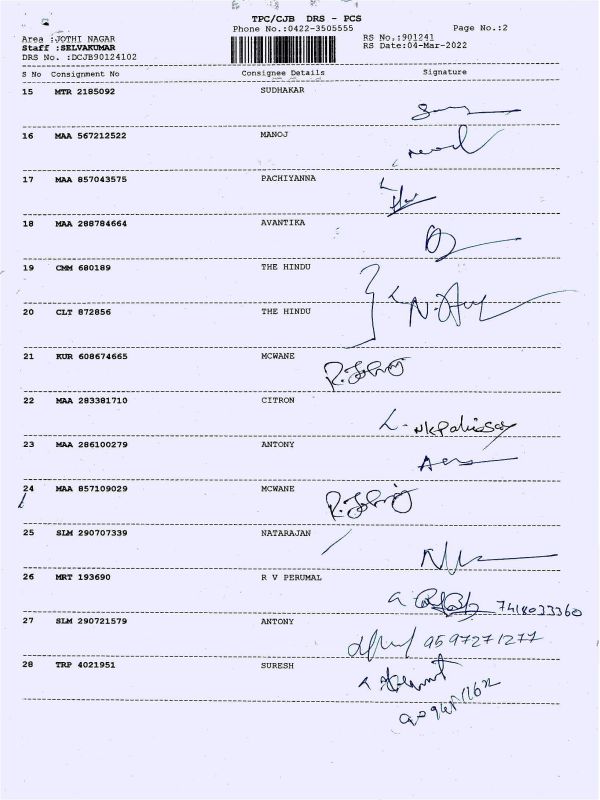 TPC/CJB DRS - PCS
Phone No.:0422-3505555 Page No.:2
Area :JOTHI NAGAR RS No.:901241
Staff :SELVAKUMAR RS Date:04-Mar-2022
DRS No. :DCJB90124102
S No Consignment No Consignee Details Signature
15 MTR 2185092 SUDHAKAR
16 MAA 567212522 MANOJ
17 MAA 857043575 PACHIYANNA
18 MAA 288784664 AVANTIKA
19 CMM 680189 THE HINDU
20 CLT 872856 THE HINDU
21 KUR 608674665 MCWANE
22 MAA 283381710 CITRON
23 MAA 286100279 ANTONY
24 MAA 857109029 MCWANE
25 SLM 290707339 NATARAJAN
26 MRT 193690 R V PERUMAL
7418033360
27 SLM 290721579 ANTONY
9597271277
28 TRP 4021951 SURESH